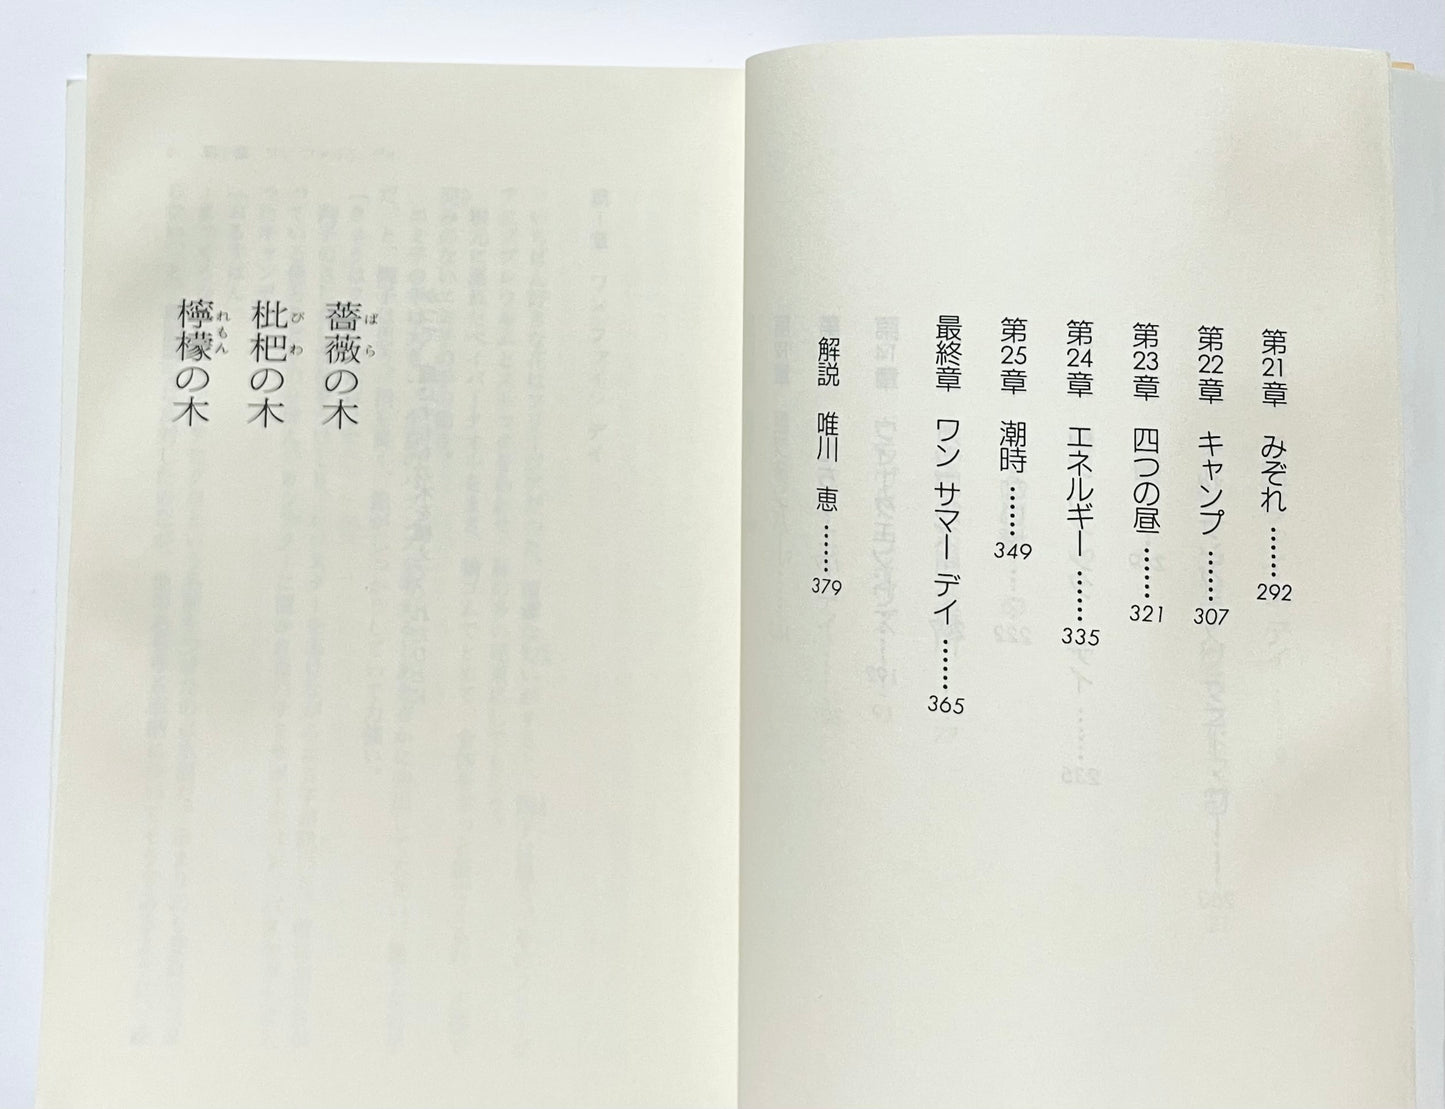 第21章 みぞれ ……… 292
第22章 キャンプ ……… 307
第23章 四つの昼 ……… 321
第24章 エネルギー ……… 335
第25章 潮時 ……… 349
最終章 ワン サマー デイ ……… 365
解説 唯川 恵 ……… 379
薔薇の木
ばら
枇杷の木
びわ
檸檬の木
れもん